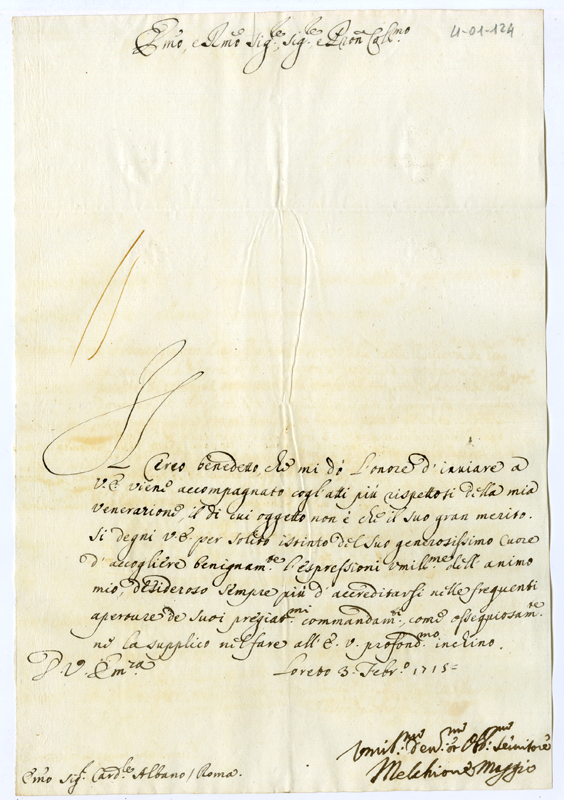 Emo, e Rmo Sig.re, Sig.re e Pron Coll.mo
4-01-124
Il Cereo benedetto che mi dò l'onore d'inuiare a
V. E. viene accompagnato cogl'atti più rispettosi della mia
venerazione, il di cui oggetto non è che il suo gran merito.
Si degni V. E. per solito istinto del suo generosissimo cuore
d'accogliere benignam.te l'espressioni vmilme dell'animo
mio, desideroso sempre più d'accreditarsi nelle frequenti
aperture de suoi pregiat.mi commandam.ti, come ossequiosam.te
ne la supplico nel fare all'E. V. profond.mo inchino.
D. V. Em.za
Loreto 3. Febr.o 1715=
Vmil.mo dev.mo et obb.mo Seruitore
Melchiorre Maggio
Emo Sig.r Card.le Albano / Roma.